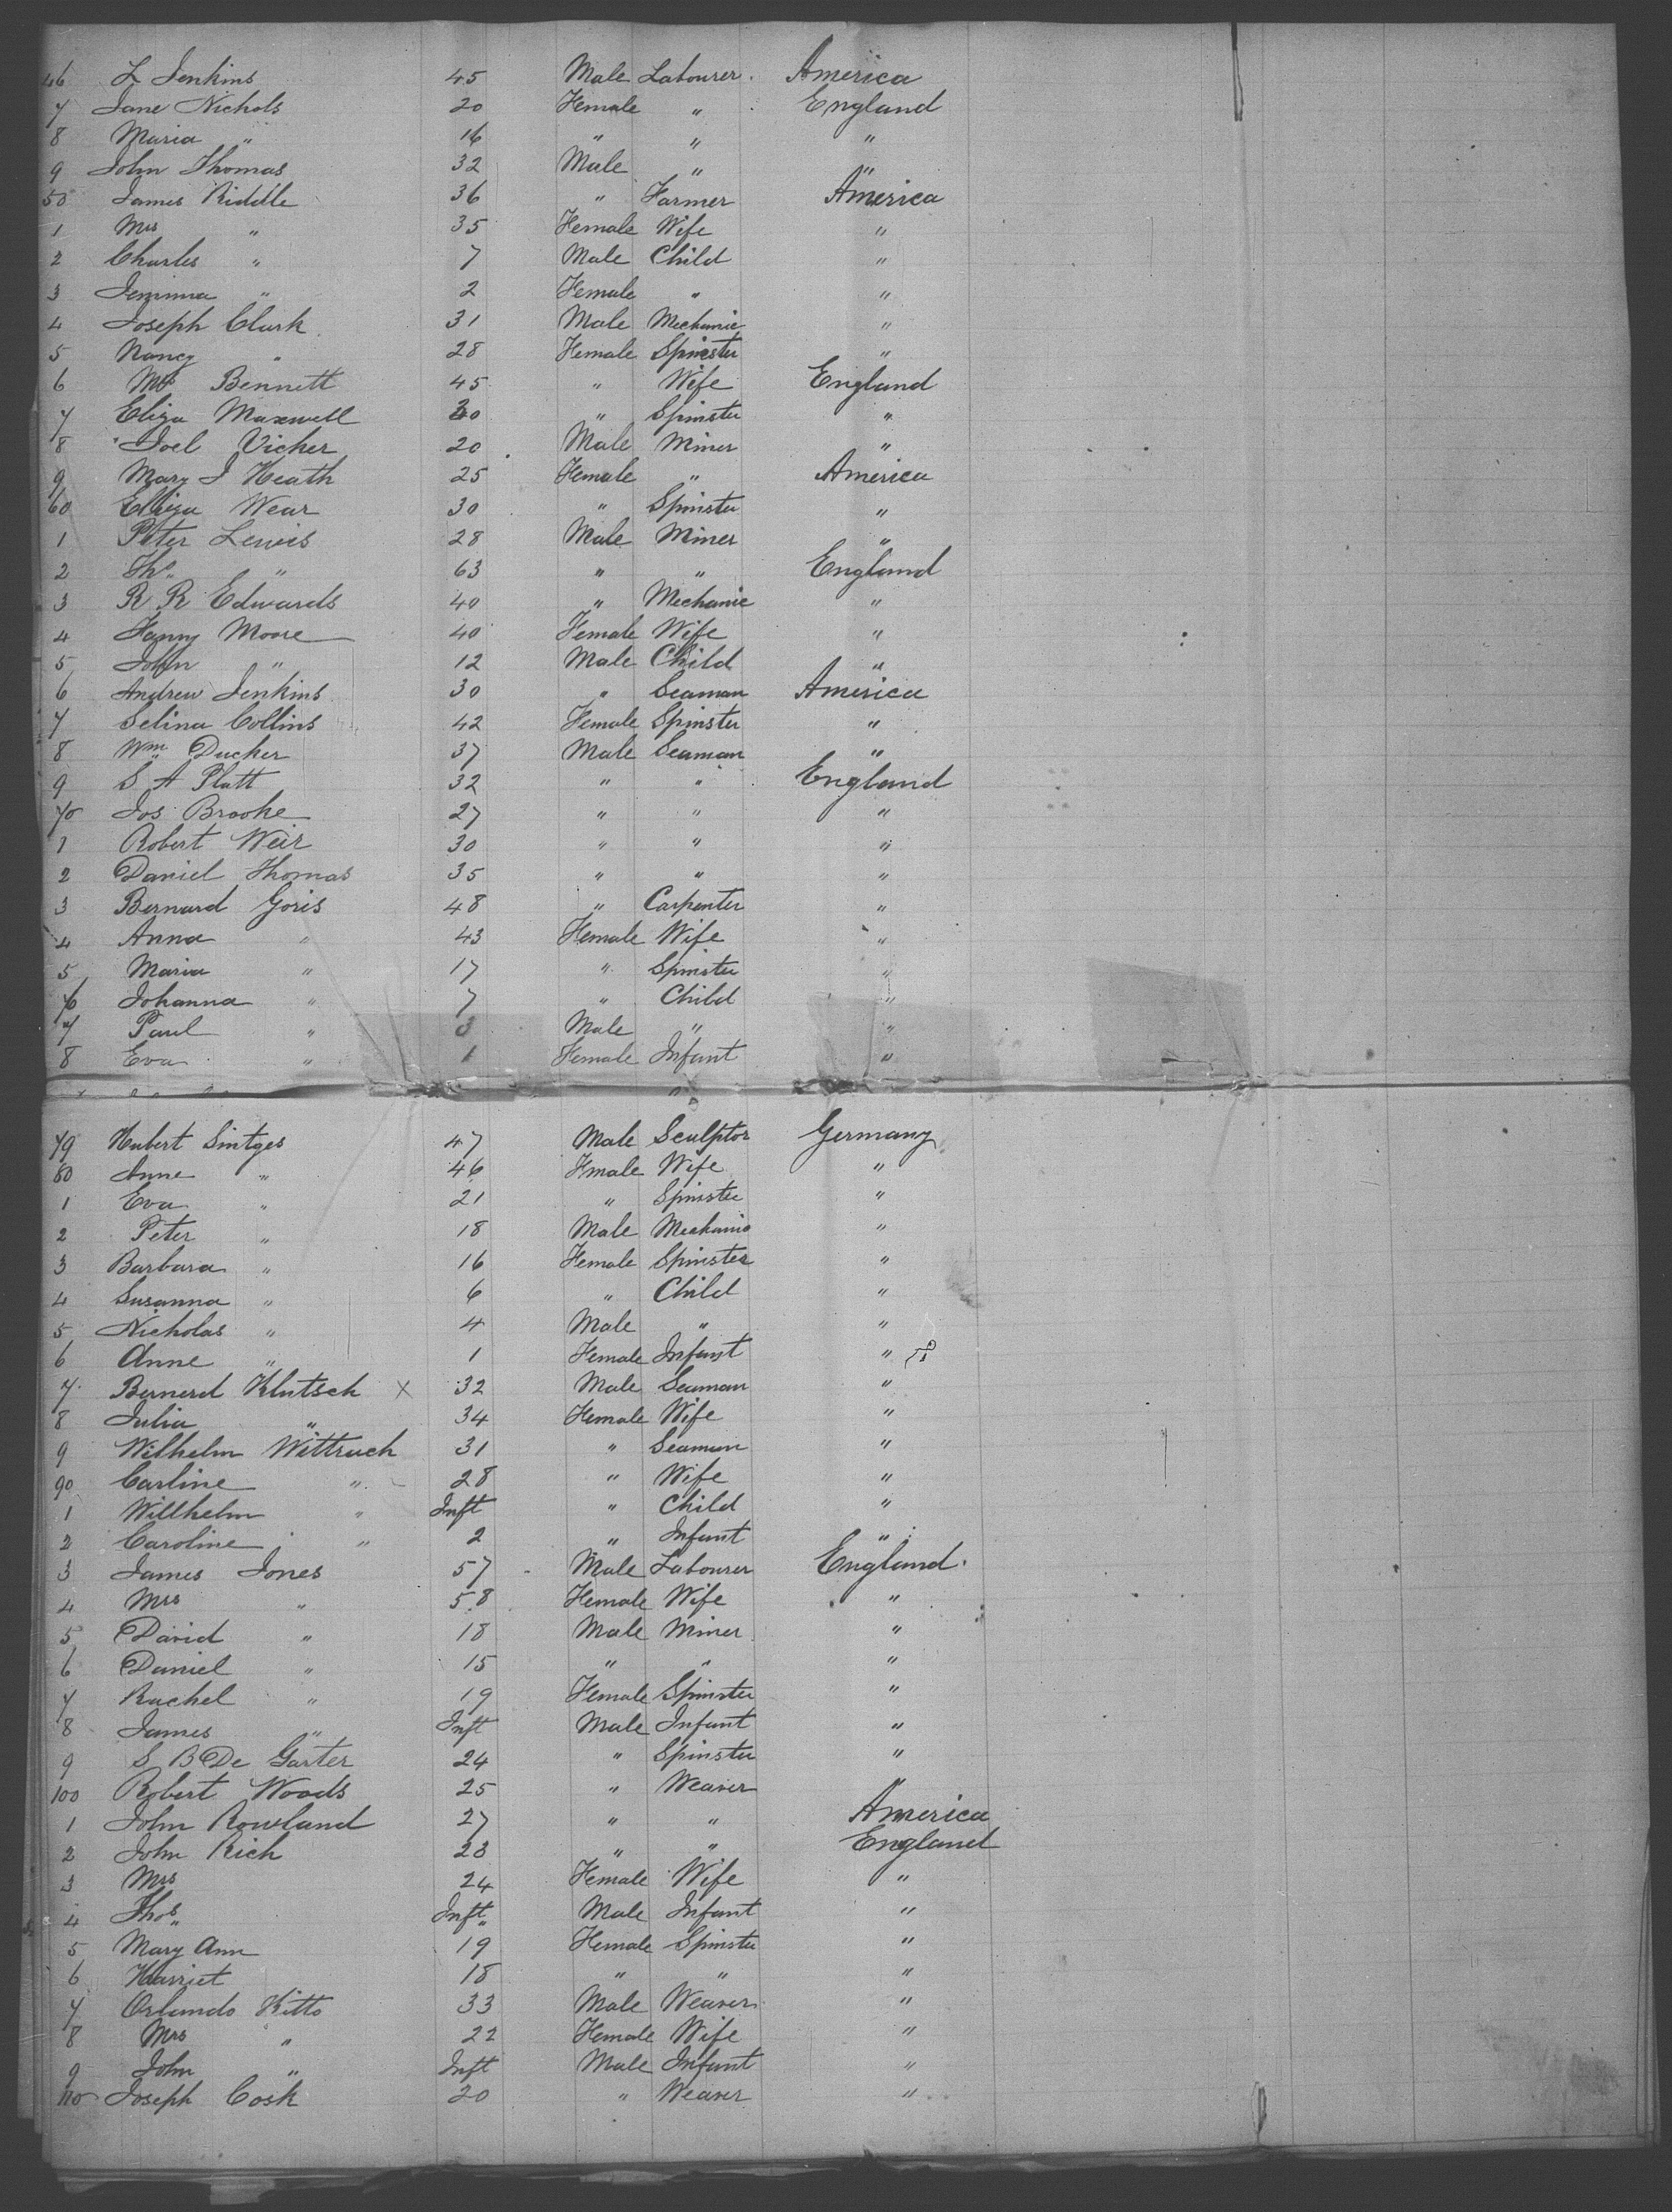 46 L Jenkins 45 Male Labourer America
7 Jane Nichols 20 Female " England
8 Maria " 16 " " "
9 John Thomas 32 Male " "
50 James Riddle 36 " Farmer America
1 Mrs " 35 Female Wife "
2 Charles " 7 Male Child "
3 Jemima " 2 Female " "
4 Joseph Clark 31 Male Mechanic "
5 Nancy " 28 Female Spinster "
6 Mrs Bennett 45 " Wife England
7 Eliza Maxwell " Spinster "
8 Joel Vicker 20 Male Miner "
9 Mary J Heath 25 Female " America
60 Eliza Wear 30 " Spinster "
1 Peter Lewis 28 Male Miner "
2 Ths " 63 " " England
3 R R Edwards 40 " Mechanic "
4 Fanny Moore 40 Female Wife "
5 John " 12 Male Child "
6 Andrew Jenkins 30 " Seaman America
7 Selina Collins 42 Female Spinster "
8 Wm Ducker 37 Male Seaman "
9 S A Platt 32 " " England
70 Jos Brooke 27 " " "
1 Robert Weir 30 " " "
2 Daniel Thomas 35 " " "
3 Bernard Goris 48 " Carpenter "
4 Anna " 43 Female Wife "
5 Maria " 17 " Spinster "
76 Johanna " 7 " Child "
7 Paul " 3 Male " "
8 Eva " 1 Female Infant "
79 Hubert Sintges 47 Male Sculptor Germany
80 Anne " 46 Fmale Wife "
1 Eva " 21 " Spinster "
2 Peter " 18 Male Mechanic "
3 Barbara " 16 Female Spinster "
4 Susanna " 6 " Child "
5 Nicholas " 4 Male " "
6 Anne " 1 Female Infant "
7 Bernerd Klutsch x 32 Male Seaman "
8 Julia " 34 Female Wife "
9 Wilhelm Wittruck 31 " Seaman "
90 Carline " 28 " Wife "
1 Willhelm " Inft " Child "
2 Caroline " 2 " Infant "
3 James Jones 57 Male Labourer England
4 Mrs " 58 Female Wife "
5 David " 18 Male Miner "
6 Daniel " 15 " " "
7 Rachel " 19 Female Spinster "
8 James " Inft Male Infant "
9 S B De Garter 24 " Spinster "
100 Robert Woods 25 " Weaver "
1 John Rowland 27 " " America
2 John Rich 23 " " England
3 Mrs 24 Female Wife "
4 Thos Inft Male Infant "
5 Mary Ann 19 Female Spinster "
6 Harriet 18 " " "
7 Orlando Kitto 33 Male Weaver "
8 Mrs " 22 Female Wife "
9 John " Inft Male Infant "
110 Joseph Cosk 20 " Weaver "